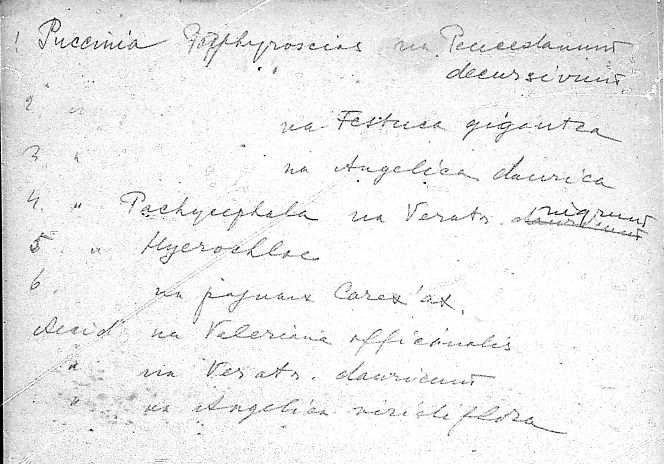 1 Puccinia Porphyroscias на Peucedanum
decursivum.
2 " на Festuca gigantea
3 " на Angelica daurica
4 " Pachycephala на Veratr. dauricum nigrum
5 " Hyerochloe
6. на разных Carex'ах.
Aecid. на Valeriana officinalis
" на Veratr. dauricum
" на Angelica viridiflora